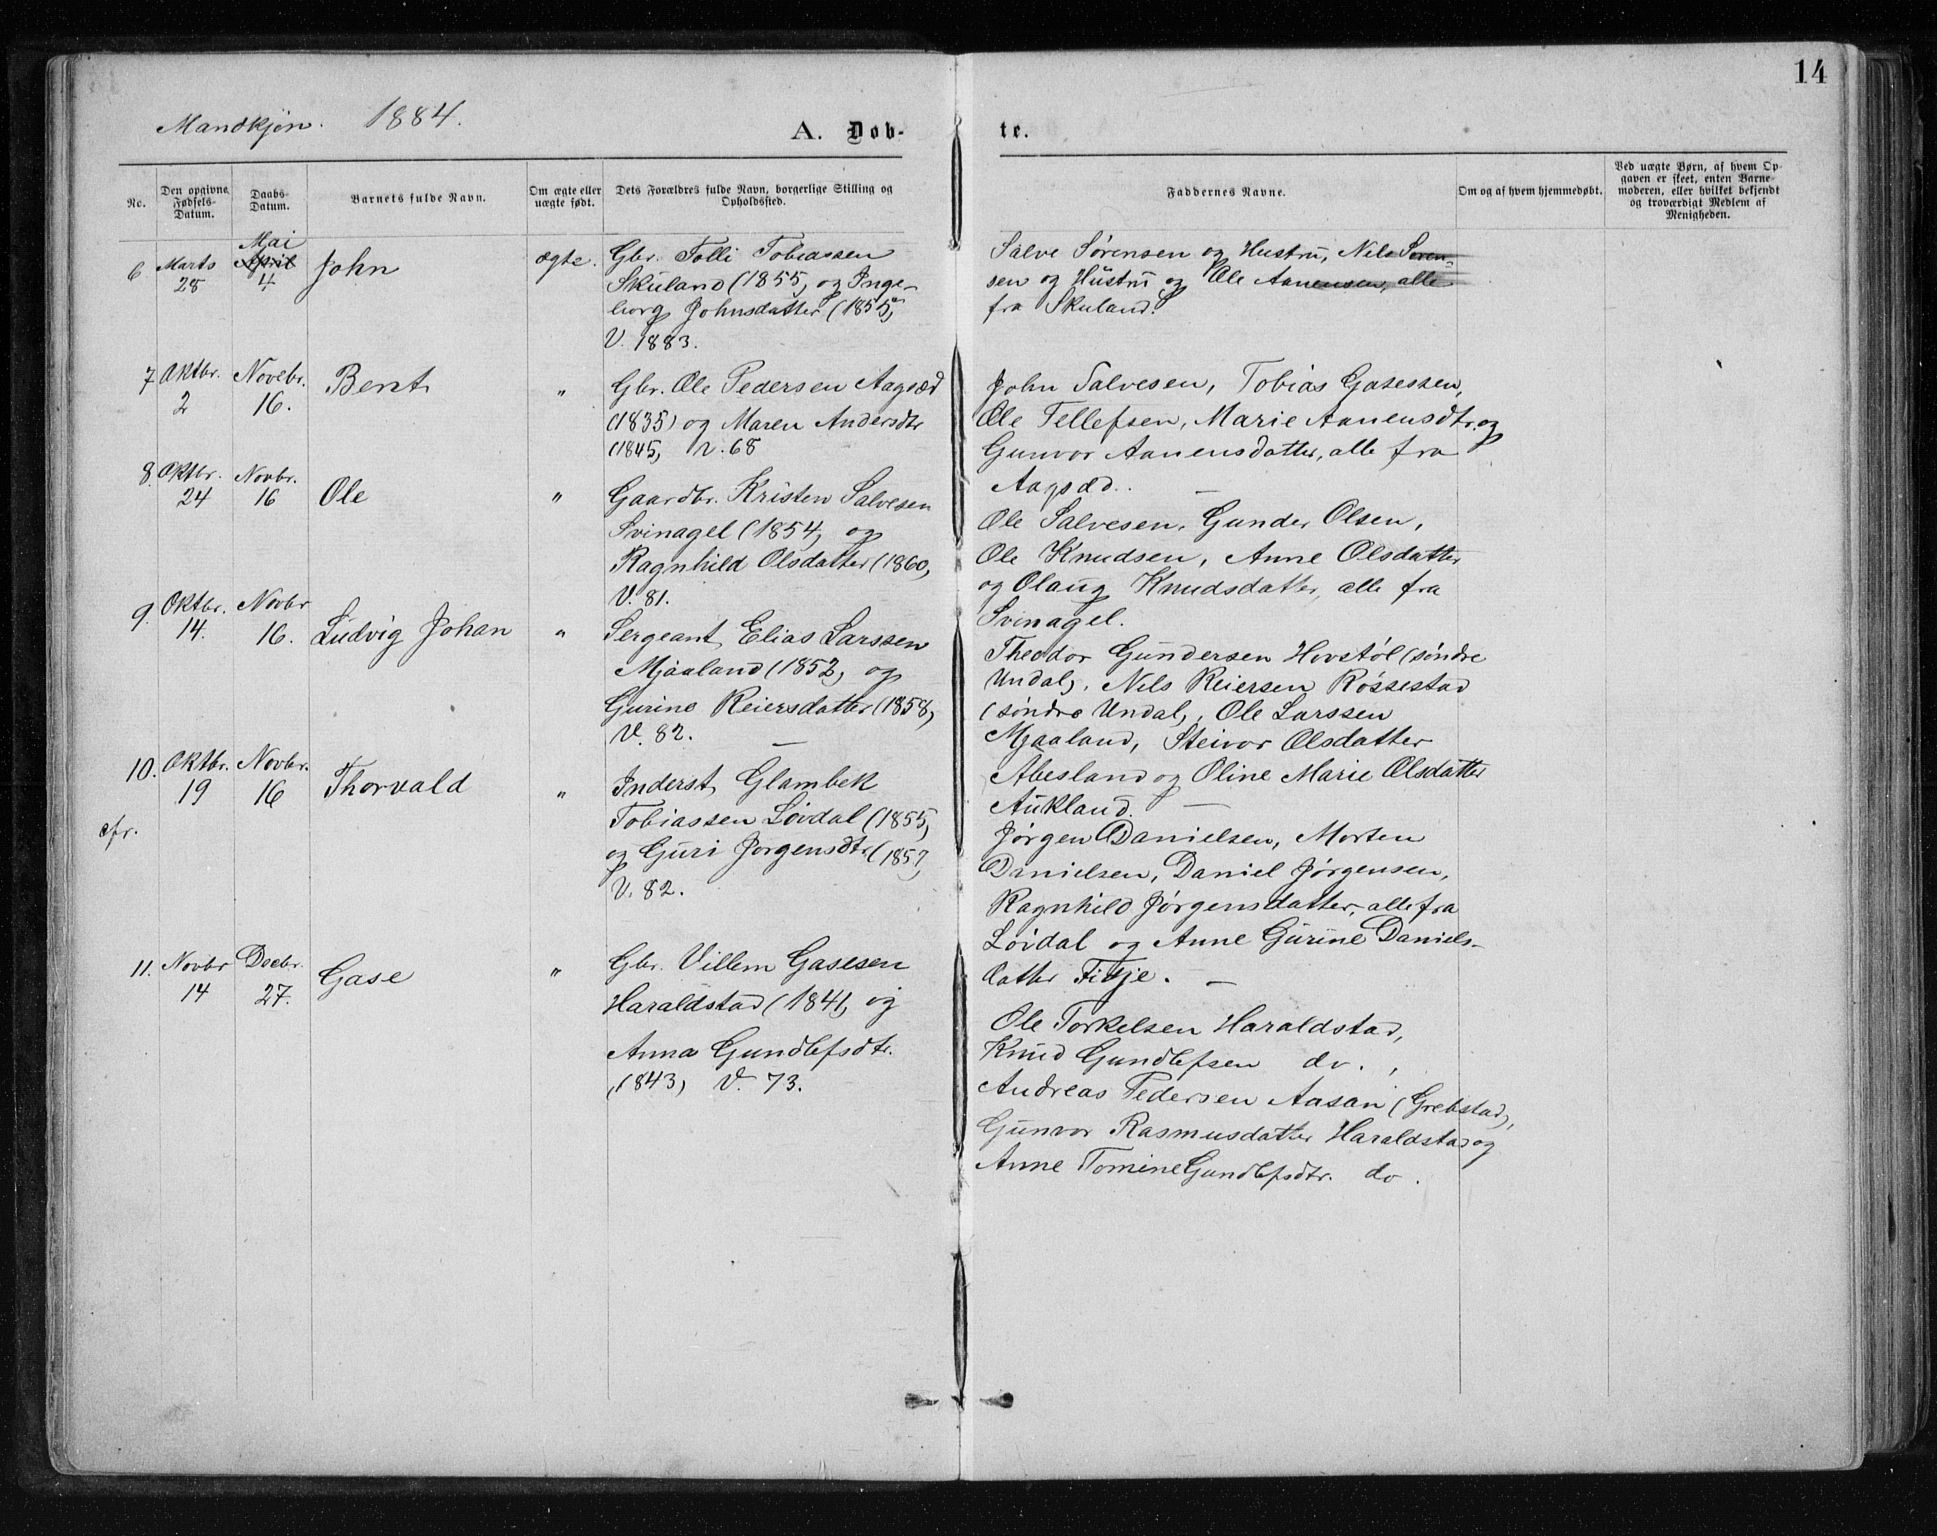 14
Mandkjøn. 1884.
A. Døb-
te.
No.
Den opgivne Fødsels-Datum.
Daabs-Datum.
Barnets fulde Navn.
Om ægte eller uægte født.
Dets Forældres fulde Navn, borgerlige Stilling og Opholdssted.
Faddernes Navne.
Om og af hvem hjemmedøbt.
Ved uægte Børn, af hvem Op-
gaven er skeet, enten Barne-
moderen, eller hvilket bekjendt
og troværdigt Medlem af
Menigheden.
6 Marts 28 Mai April 4 John ægte.
Gbr. Tolli Tobiassen
Skuland (1855, og Inge-
borg Johnsdatter (1855,
V. 1883.
Salve Sørensen og Hustru, Nils Søren-
sen og Hustru og Ole Aanensen, alle
fra Skuland.
7 Oktbr. 2 Novebr. 16. Bent "
Gbr. Ole Pedersen Aagsæd
(1835) og Maren Andersdtr
(1845, v. 68
John Salvesen, Tobias Gasessen,
Ole Tellefsen, Marie Aanensdtr. og
Gunvor Aanensdatter, alle fra
Aagsæd. —
8. Oktbr. 24 Novbr. 16 Ole "
Gaardbr. Kristen Salvesen
Svinagel (1854, og
Ragnhild Olsdatter (1860,
V. 81.
Ole Salvesen, Gunder Olsen,
Ole Knudsen, Anne Olsdatter
og Olaug Knudsdatter, alle fra
Svinagel.
9. Oktbr. 14. Novbr 16. Ludvig Johan "
Sergeant Elias Larssen
Mjaaland (1852, og
Gurine Reiersdatter (1858,
V. 82. —
Theodor Gundersen Hovstøl (søndre
Undal, Nils Reiersen Røssestad
(søndre Undal, Ole Larssen
Mjaaland, Steivor Olsdatter
Abesland og Oline Marie Olsdatter
Aukland. —
10. Oktbr. 19 Novbr. 16 Thorvald "
cfr.
Inderst Glambek
Tobiassen Løvdal (1855,
og Guri Jørgensdtr. (1857,
V. 82.
Jørgen Danielsen, Morten
Danielsen, Daniel Jørgensen,
Ragnhild Jørgensdatter, alle fra
Løvdal og Anne Gurine Daniels-
datter Fidje. —
11. Novbr 14 Decbr. 27. Gase "
Gbr. Villem Gasesen
Haraldstad (1841, og
Anna Gundlefsdtr.
(1843, V. 73.
Ole Torkelsen Haraldstad,
Knud Gundlefsen do.,
Andreas Pedersen Aasan (Grebstad,
Gunvor Rasmusdatter Haraldstad og
Anne Tomine Gundlefsdtr. do.